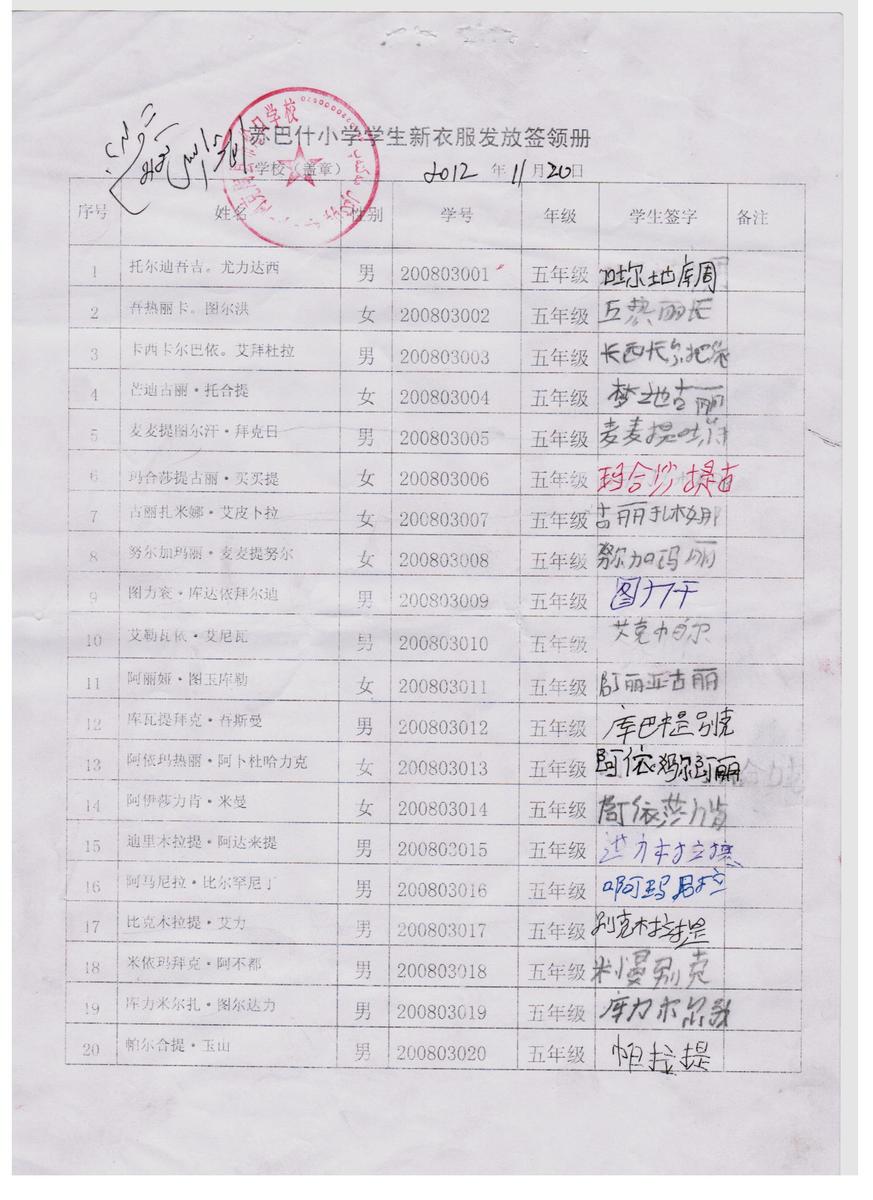 苏巴什小学学生新衣服发放签领册
学校（盖章） 2012 年 11 月 20 日
序号 姓名 性别 学号 年级 学生签字 备注
1 托尔迪吾吉。尤力达西 男 200803001 五年级 吐尔地库周
2 吾热丽卡。图尔洪 女 200803002 五年级
3 卡西卡尔巴依。艾拜杜拉 男 200803003 五年级
4 芒迪古丽·托合提 女 200803004 五年级 梦地古丽
5 麦麦提图尔汗·拜克日 男 200803005 五年级 麦麦提吐
6 玛合莎提古丽·买买提 女 200803006 五年级 玛合沙提古
7 古丽扎米娜·艾皮卜拉 女 200803007 五年级 古丽扎木娜
8 努尔加玛丽·麦麦提努尔 女 200803008 五年级 努尔加玛丽
9 图力衮·库达依拜尔迪 男 200803009 五年级 图力干
10 艾勒瓦依·艾尼瓦 男 200803010 五年级 艾克帕尔
11 阿丽娅·图玉库勒 女 200803011 五年级 阿丽亚古丽
12 库瓦提拜克·吾斯曼 男 200803012 五年级 库巴提别克
13 阿依玛热丽·阿卜杜哈力克 女 200803013 五年级 阿依玛尔阿丽
14 阿伊莎力肯·米曼 女 200803014 五年级 阿依莎力肯
15 迪里木拉提·阿达来提 男 200803015 五年级
16 阿马尼拉·比尔罕尼丁 男 200803016 五年级
17 比克木拉提·艾力 男 200803017 五年级 别克木拉提
18 米依玛拜克·阿不都 男 200803018 五年级 米慢别克
19 库力米尔扎·图尔达力 男 200803019 五年级
20 帕尔合提·玉山 男 200803020 五年级 帕拉提